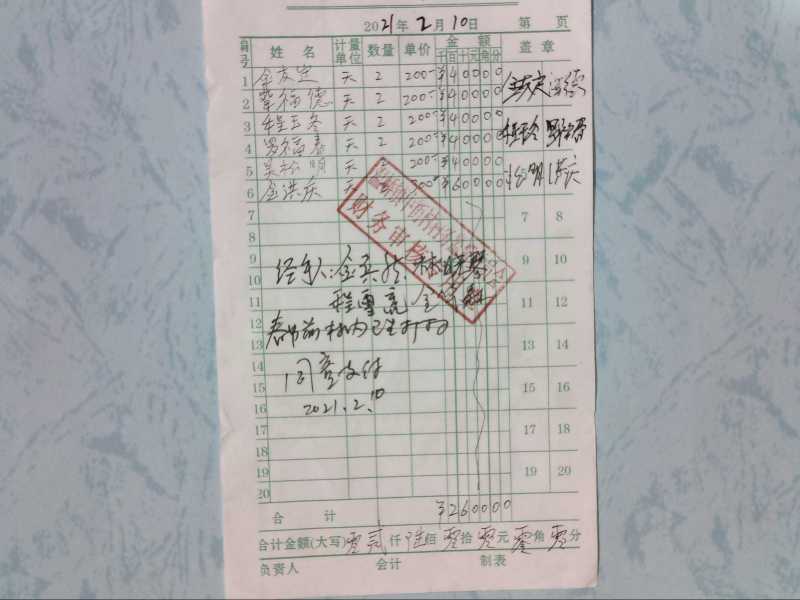 2021年2月10日 第 页
编号 姓名 计量单位 数量 单价 金额 盖章
千百十元角分
1 金友定 天 2 200- ¥40000
2 覃福德 天 2 200- ¥40000
3 程玉冬 天 2 200- ¥40000
4 天 2 200- ¥40000
5 吴松明 天 2 200- ¥40000
6 金洪庆 天 200 ¥60000
7 7 8
8
9 9 10
10 经手人:金
11 程雪亮 11 12
12 春节前村内卫生打扫
13 13 14
14 同意支付
15 15 16
16 2021.2.10
17 17 18
18
19 19 20
20
财务审核
合计 ¥260000
合计金额(大写) 零贰仟陆佰零拾零元零角零分
负责人 会计 制表